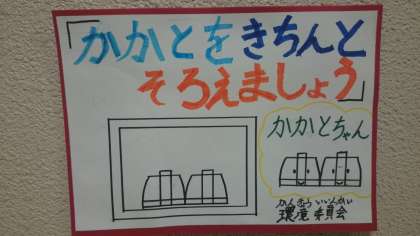 「かかとをきちんと
そろえましょう」
かかとちゃん
かんきょういいんかい
環境委員会